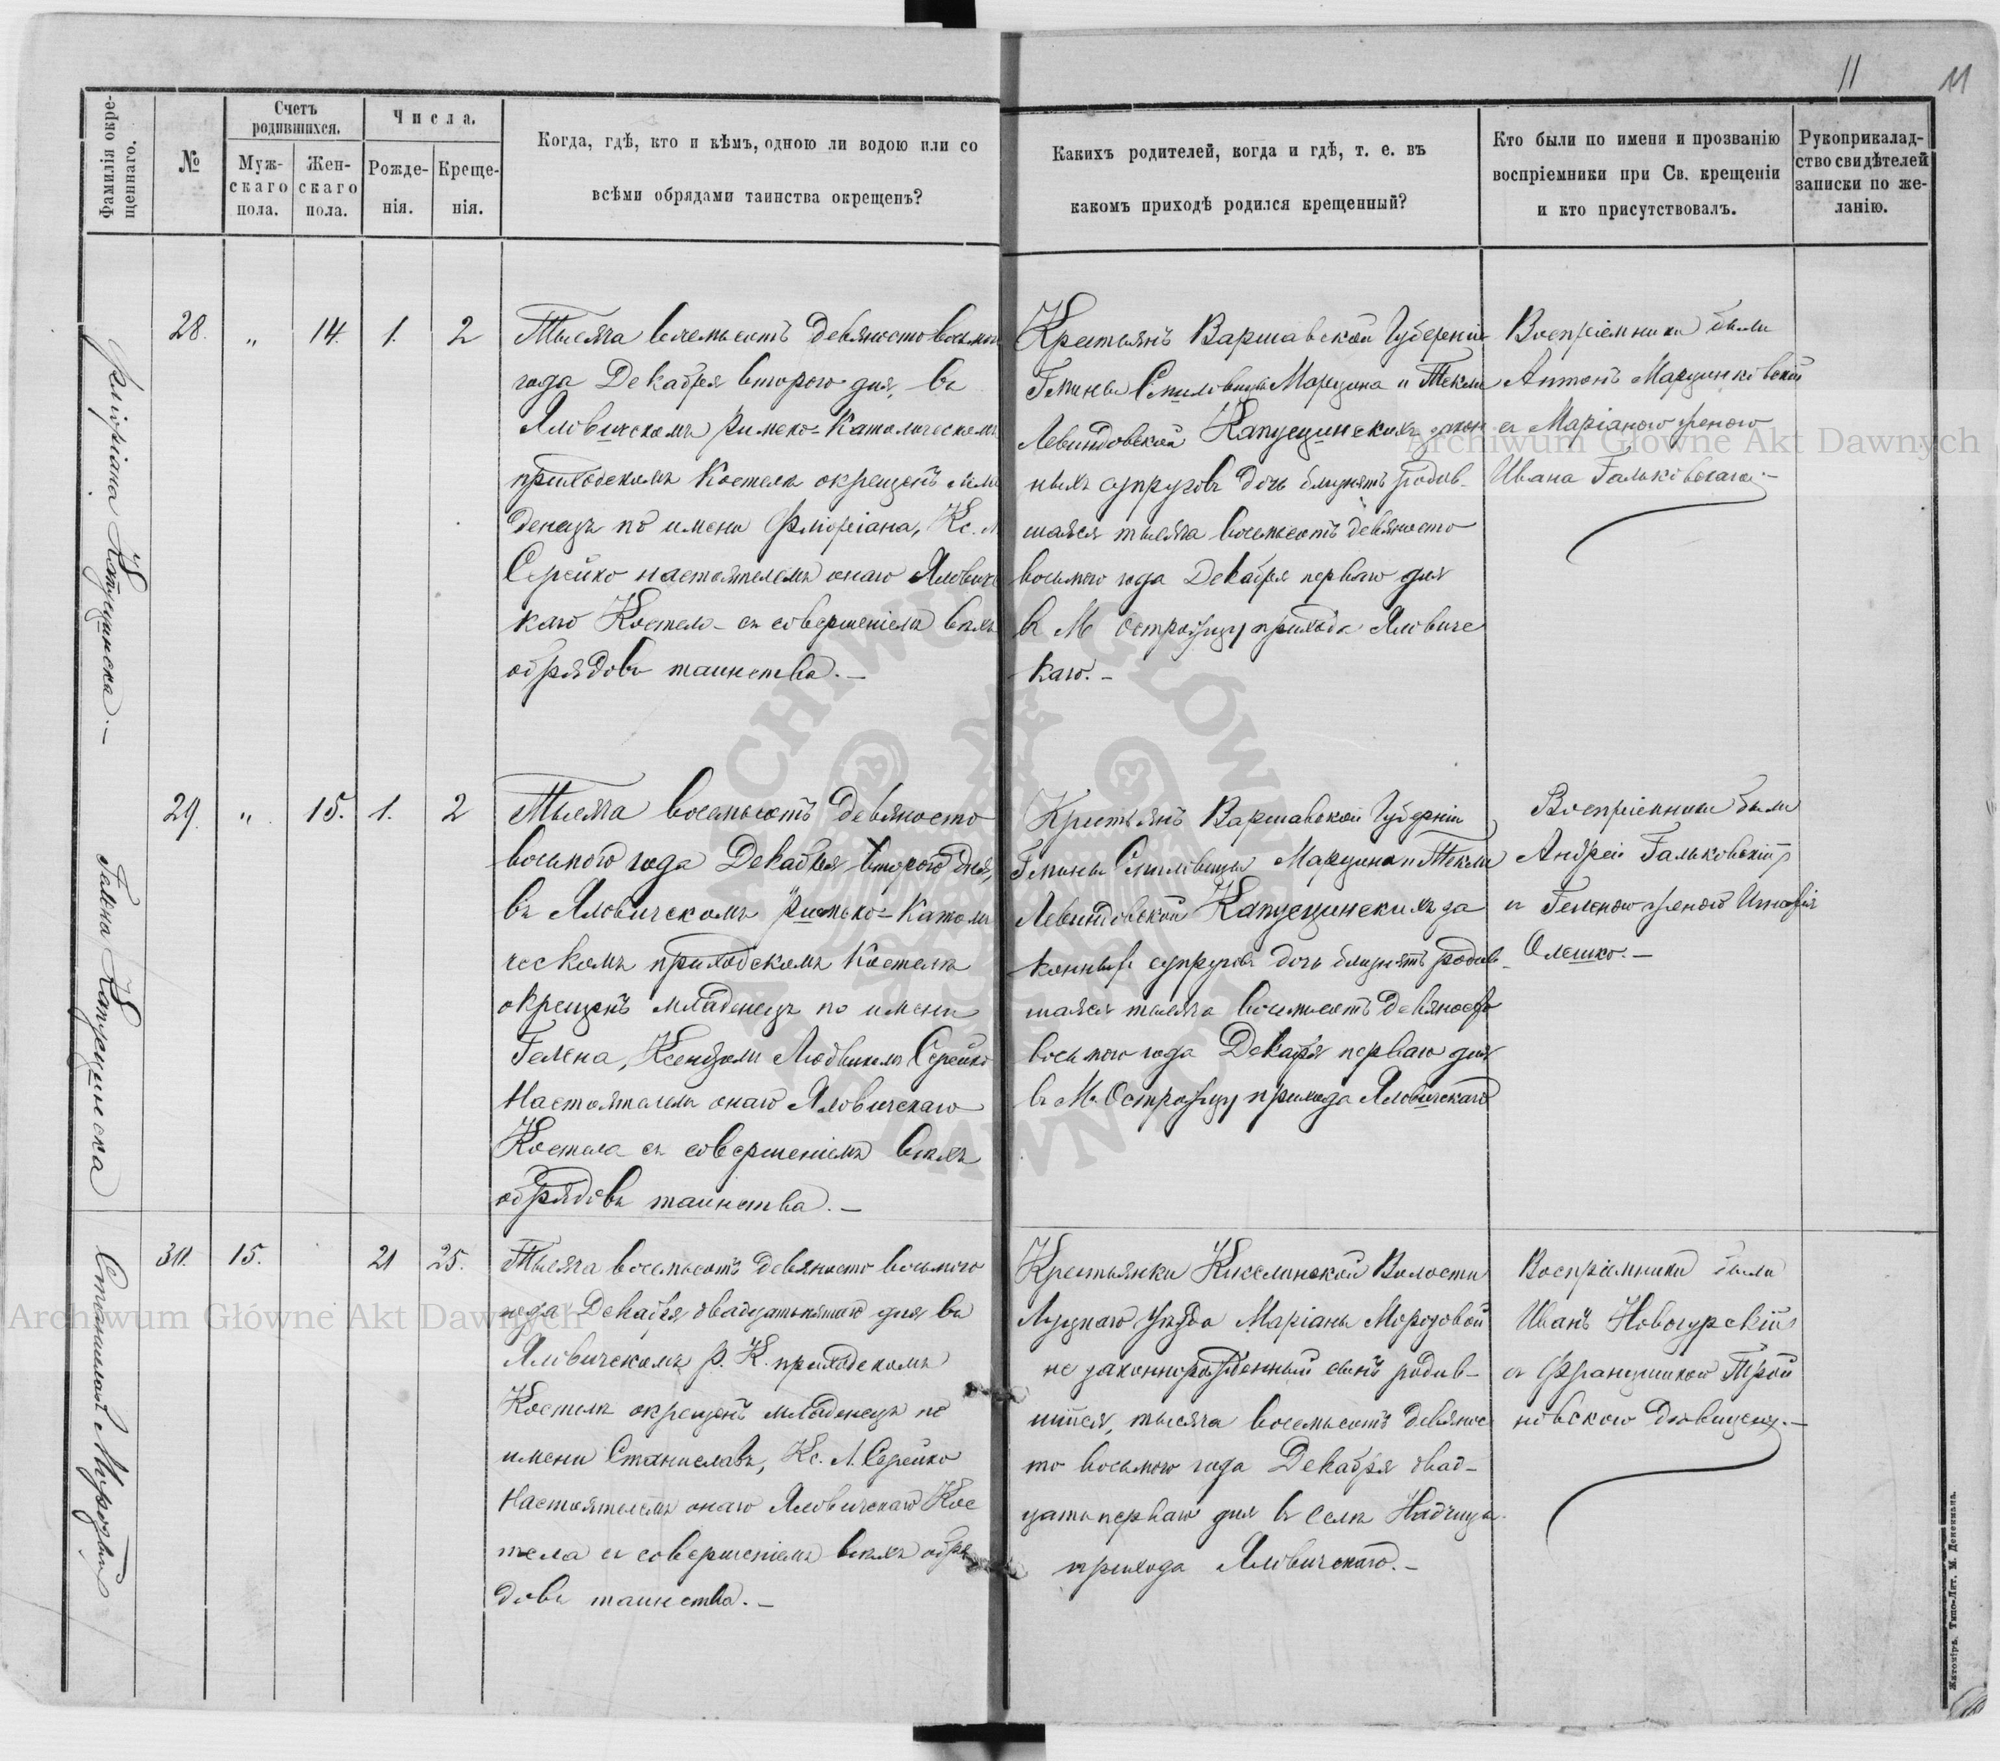 11 11
Фамилія окре-
щеннаго.
№
Счетъ
родившихся.
Муж-
скаго
пола.
Жен-
скаго
пола.
Числа.
Рожде-
нія.
Креще-
нія.
Когда, гдѣ, кто и кѣмъ, одною ли водою или со
всѣми обрядами таинства окрещенъ?
Какихъ родителей, когда и гдѣ, т. е. въ
какомъ приходѣ родился крещенный?
Кто были по имени и прозванію
воспріемники при Св. крещеніи
и кто присутствовалъ.
Рукоприкалад-
ство свидѣтелей
записки по же-
ланію.
Фліоріана Капусцинска.—
28. „ 14. 1. 2
Тысяча восемьсотъ девяносто восьмого
года Декабря второго дня, въ
Яловичскомъ Римско-Католическомъ
приходскомъ Костелѣ окрещенъ мла
денецъ по имени Фліоріана, Кс. Л.
Серейко настоятелемъ онаго Яловичс
каго Костела съ совершеніемъ всѣхъ
обрядовъ таинства.—
Крестьянъ Варшавской Губерніи
Гмины Марцина и Текли
Левиндовской Капусцинскихъ закон
ныхъ супруговъ дочь близнятъ родив-
шаяся тысяча восемьсотъ девяносто
восьмого года Декабря перваго дня
въ М. прихода Яловичс
каго.—
Воспріемники были
Антонъ Марцинковскій
съ Маріаною женою
Ивана Гальковскаго.—
Галена Капусцинска
29. „ 15. 1. 2
Тысяча восемьсотъ девяносто
восьмого года Декабря второго дня,
въ Яловичскомъ Римско-Католи
ческомъ приходскомъ Костелѣ
окрещенъ младенецъ по имени
Гелена, Ксендзомъ Людвикомъ Серейко
Настоятелемъ онаго Яловичскаго
Костела съ совершеніемъ всѣхъ
обрядовъ таинства.—
Крестьянъ Варшавской Губерніи
Гмины Марцина и Текли
Левиндовской Капусцинскихъ за
конныхъ супруговъ дочь близнятъ родив-
шаяся тысяча восемьсотъ девяносто
восьмого года Декабря перваго дня
въ М. прихода Яловичскаго
Воспріемники были
Андрей Гальковскій
съ Геленою женою
Олешко.—
Станиславъ Морозовъ
30. 15. 21 25.
Тысяча восемьсотъ девяносто восьмого
года Декабря двадцатьпятаго дня въ
Яловичскомъ Р. К. приходскомъ
Костелѣ окрещенъ младенецъ по
имени Станиславъ, Кс. Л. Серейко
Настоятелемъ онаго Яловичскаго Кос
тела съ совершеніемъ всѣхъ обря
довъ таинства.—
Крестьянки Киселинской Волости
Луцкаго Уѣзда Маріаны Морозовой
не законнорожденный сынъ родив-
шійся, тысяча восемьсотъ девянос
то восьмого года Декабря двад-
цатьперваго дня въ селѣ Надчицы
прихода Яловичскаго.—
Воспріемники были
Иванъ Новогурскій
съ Францишкою Трой
новскою дѣвицею.—
Житоміръ. Типо-Лит. М. Дененмана.
Archiwum Główne Akt Dawnych
Archiwum Główne Akt Dawnych
ARCHIWUM GŁÓWNE AKT DAWNYCH